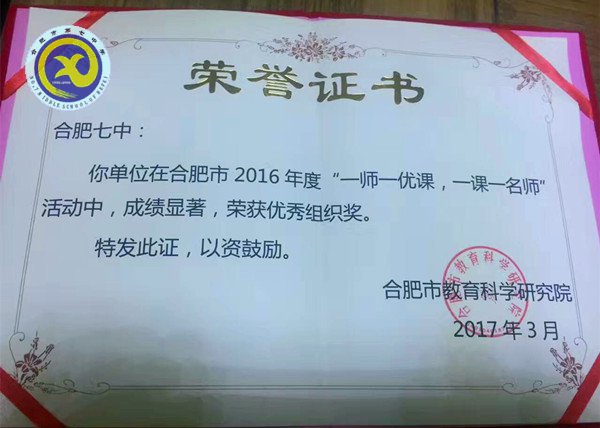 合肥市第七中学
NO.7 MIDDLE SCHOOL OF HEFEI
荣誉证书
合肥七中：
你单位在合肥市 2016 年度“一师一优课，一课一名师”
活动中，成绩显著，荣获优秀组织奖。
特发此证，以资鼓励。
合肥市教育科学研究院
合肥市教育科学研究院
2017 年 3 月